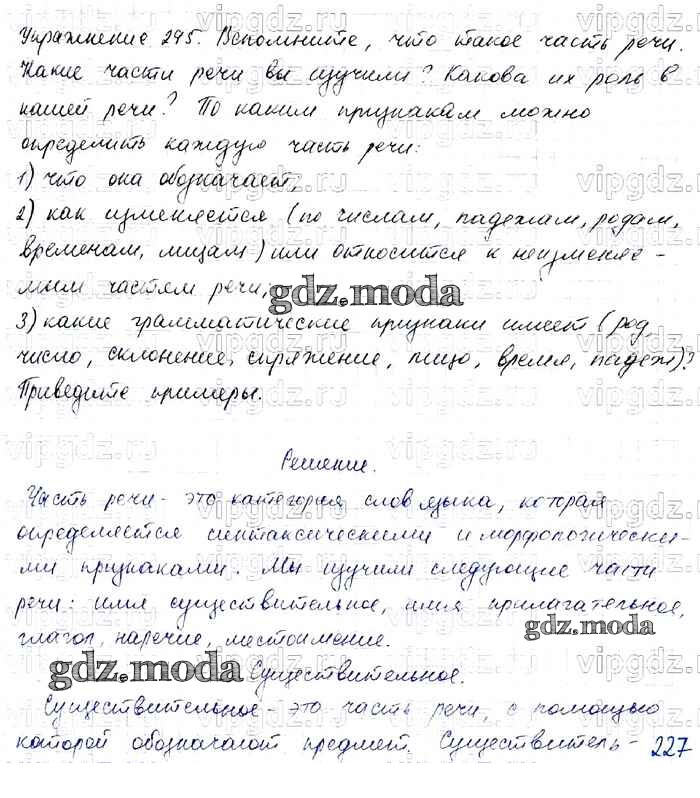 Упражнение 245. Вспомните, что такое часть речи.
Какие части речи вы изучили? Какова их роль в
нашей речи? По каким признакам можно
определить каждую часть речи:
1) что она обозначает,
2) как изменяется (по числам, падежам, родам,
временам, лицам) или относится к неизменяе-
мым частям речи,
gdz.moda
3) какие грамматические признаки имеет (род
число, склонение, спряжение, лицо, время, падеж)?
Приведите примеры.
Решение.
Часть речи - это категория слов языка, которая
определяется синтаксическими и морфологически-
ми признаками. Мы изучили следующие части
речи: имя существительное, имя прилагательное,
gdz.moda
глагол, наречие, местоимение.
gdz.moda
Существительное.
Существительное - это часть речи, с помощью
которой обозначают предмет. Существитель-
227
vipgdz.ru